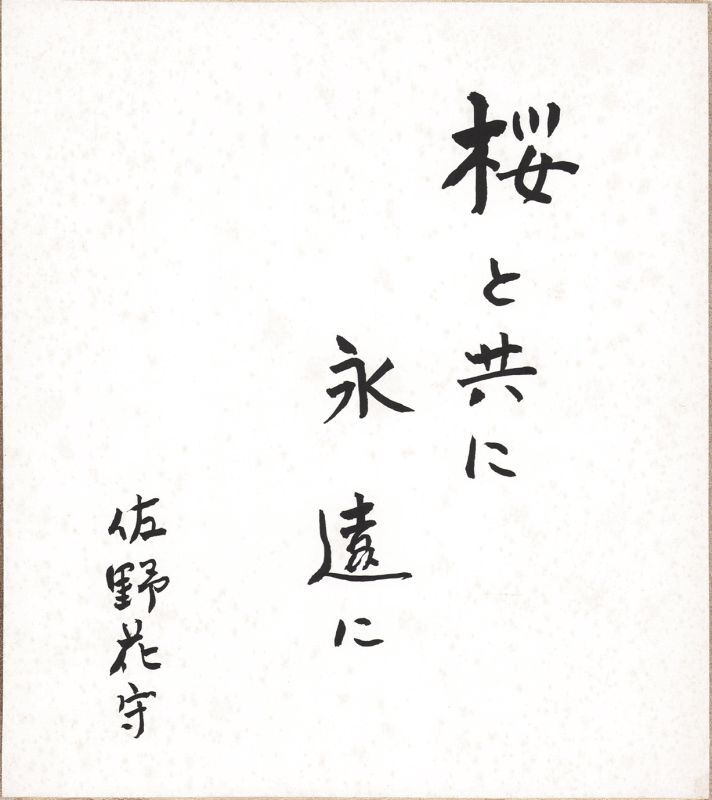 桜と共に
永遠に
佐野花守